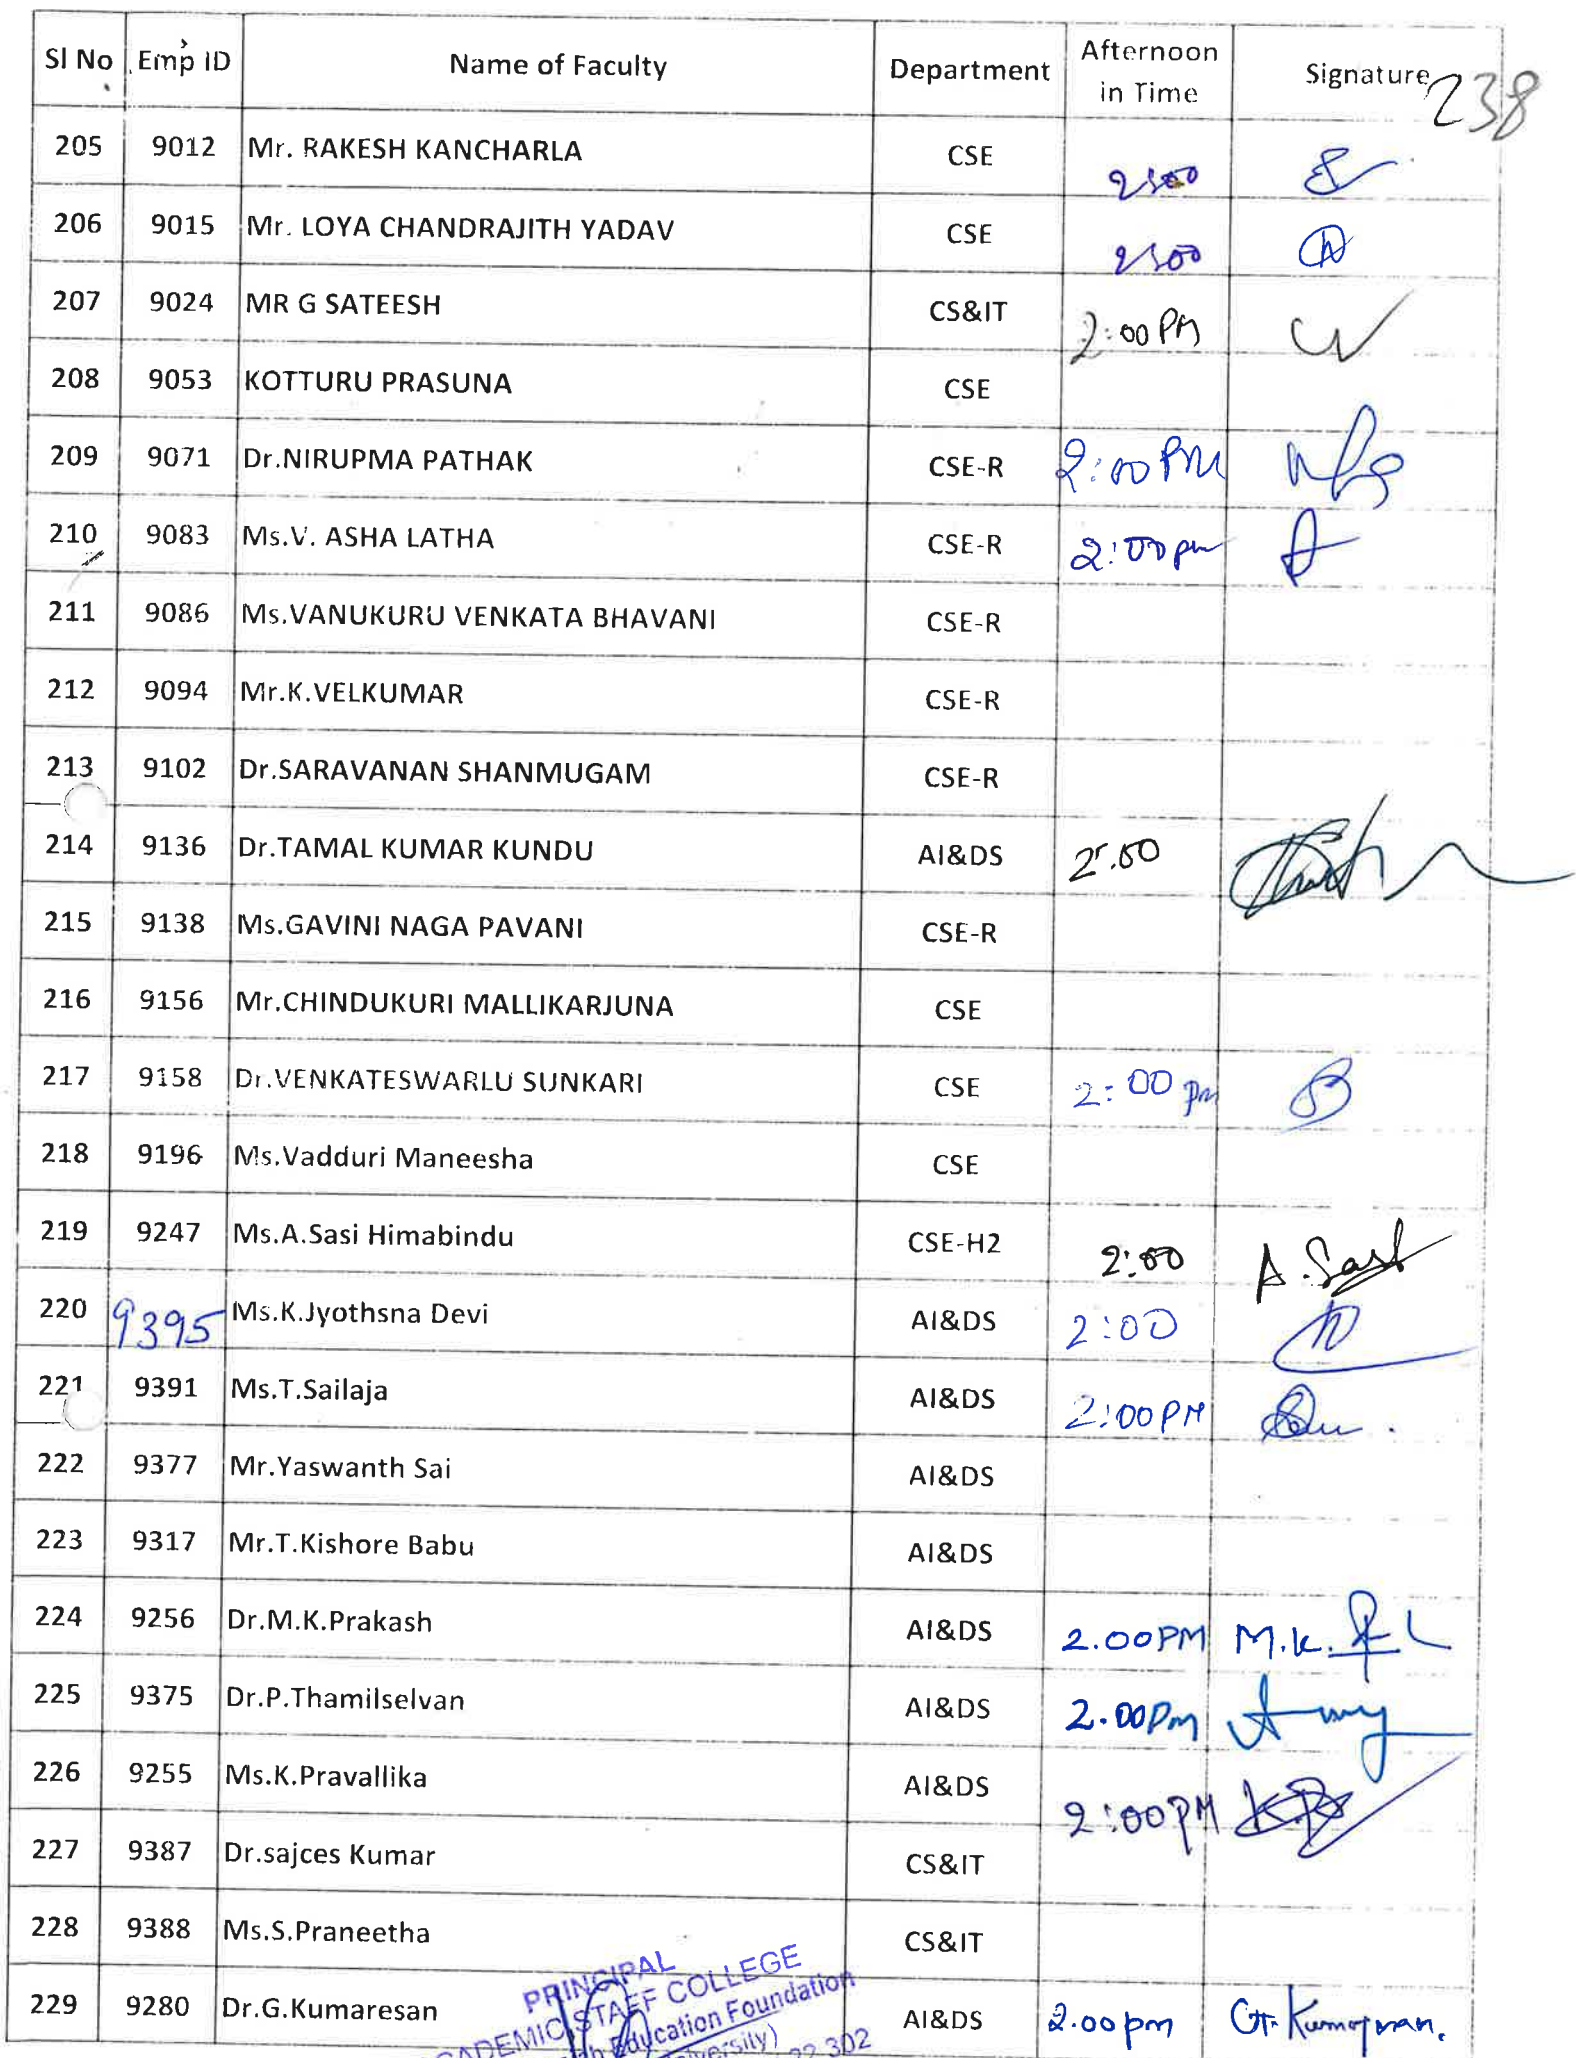 Sl No Emp ID Name of Faculty Department Afternoon in Time Signature 238
205 9012 Mr. RAKESH KANCHARLA CSE 2:00
206 9015 Mr. LOYA CHANDRAJITH YADAV CSE 2:00
207 9024 MR G SATEESH CS&IT 2:00 PM
208 9053 KOTTURU PRASUNA CSE
209 9071 Dr.NIRUPMA PATHAK CSE-R 2:00 PM
210 9083 Ms.V. ASHA LATHA CSE-R 2:00 pm
211 9086 Ms.VANUKURU VENKATA BHAVANI CSE-R
212 9094 Mr.K.VELKUMAR CSE-R
213 9102 Dr.SARAVANAN SHANMUGAM CSE-R
214 9136 Dr.TAMAL KUMAR KUNDU AI&DS 2:00
215 9138 Ms.GAVINI NAGA PAVANI CSE-R
216 9156 Mr.CHINDUKURI MALLIKARJUNA CSE
217 9158 Dr.VENKATESWARLU SUNKARI CSE 2:00 pm
218 9196 Ms.Vadduri Maneesha CSE
219 9247 Ms.A.Sasi Himabindu CSE-H2 2:00 A.Sasi
220 9395 Ms.K.Jyothsna Devi AI&DS 2:00
221 9391 Ms.T.Sailaja AI&DS 2:00 PM
222 9377 Mr.Yaswanth Sai AI&DS
223 9317 Mr.T.Kishore Babu AI&DS
224 9256 Dr.M.K.Prakash AI&DS 2.00 PM M.K.
225 9375 Dr.P.Thamilselvan AI&DS 2.00 Pm
226 9255 Ms.K.Pravallika AI&DS 2:00 PM
227 9387 Dr.sajces Kumar CS&IT
228 9388 Ms.S.Praneetha CS&IT
229 9280 Dr.G.Kumaresan AI&DS 2.00 pm G.Kumaresan.
PRINCIPAL
STAFF COLLEGE
Education Foundation